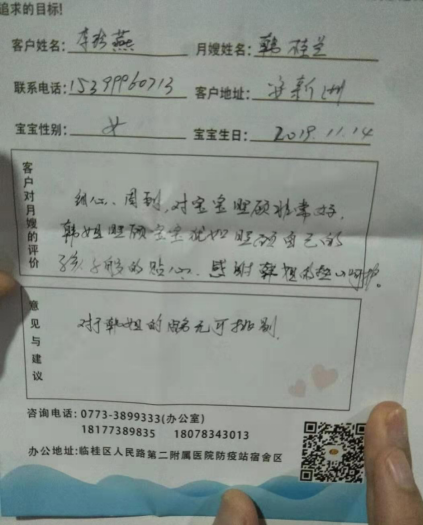 追求的目标!
客户姓名: 李 燕 月嫂姓名: 韩桂兰
联系电话: 15399960713 客户地址: 洲
宝宝性别: 女 宝宝生日: 2019.11.14
客户对月嫂的评价
细心、周到,对宝宝照顾非常好,
韩姐照顾宝宝犹如照顾自己的
孩子般的贴心、感谢韩姐的 呵护。
意见与建议
对于韩姐的服务无可挑剔
咨询电话: 0773-3899333(办公室)
18177389835 18078343013
办公地址:临桂区人民路第二附属医院防疫站宿舍区